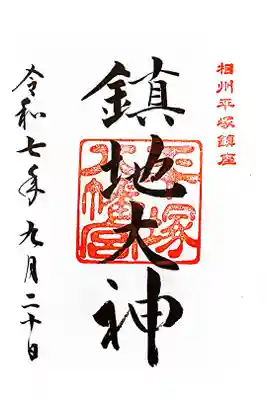 相州平塚鎮座
鎮地大神
平塚八幡宮
令和七年九月二十日